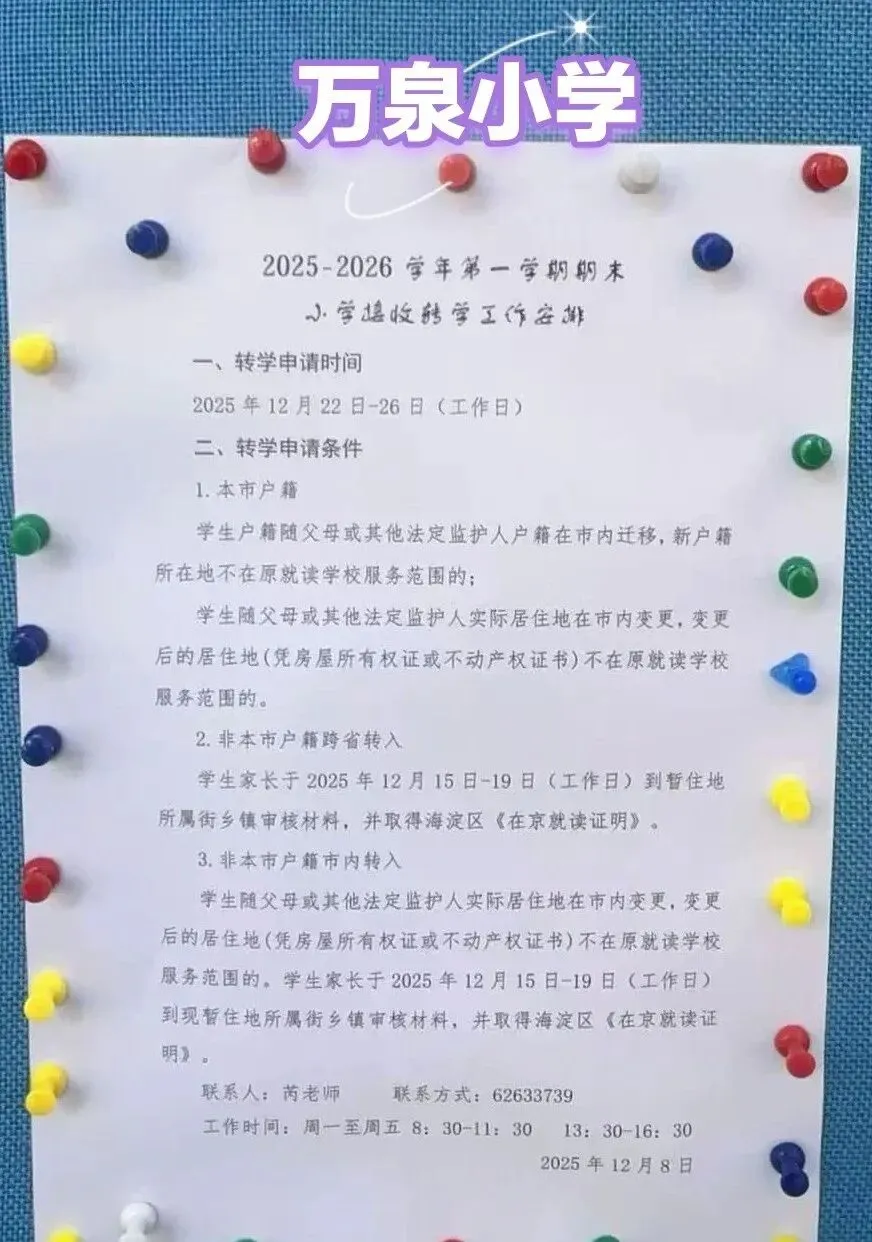 万泉小学
2025-2026 学年第一学期期末
小学接收转学工作安排
一、转学申请时间
2025 年 12 月 22 日-26 日（工作日）
二、转学申请条件
1.本市户籍
学生户籍随父母或其他法定监护人户籍在市内迁移,新户籍
所在地不在原就读学校服务范围的;
学生随父母或其他法定监护人实际居住地在市内变更,变更
后的居住地(凭房屋所有权证或不动产权证书)不在原就读学校
服务范围的。
2.非本市户籍跨省转入
学生家长于 2025 年 12 月 15 日-19 日（工作日）到暂住地
所属街乡镇审核材料，并取得海淀区《在京就读证明》。
3.非本市户籍市内转入
学生随父母或其他法定监护人实际居住地在市内变更,变更
后的居住地(凭房屋所有权证或不动产权证书)不在原就读学校
服务范围的。学生家长于 2025 年 12 月 15 日-19 日（工作日）
到现暂住地所属街乡镇审核材料，并取得海淀区《在京就读证
明》。
联系人：芮老师 联系方式：62633739
工作时间：周一至周五 8：30-11：30 13：30-16：30
2025 年 12 月 8 日